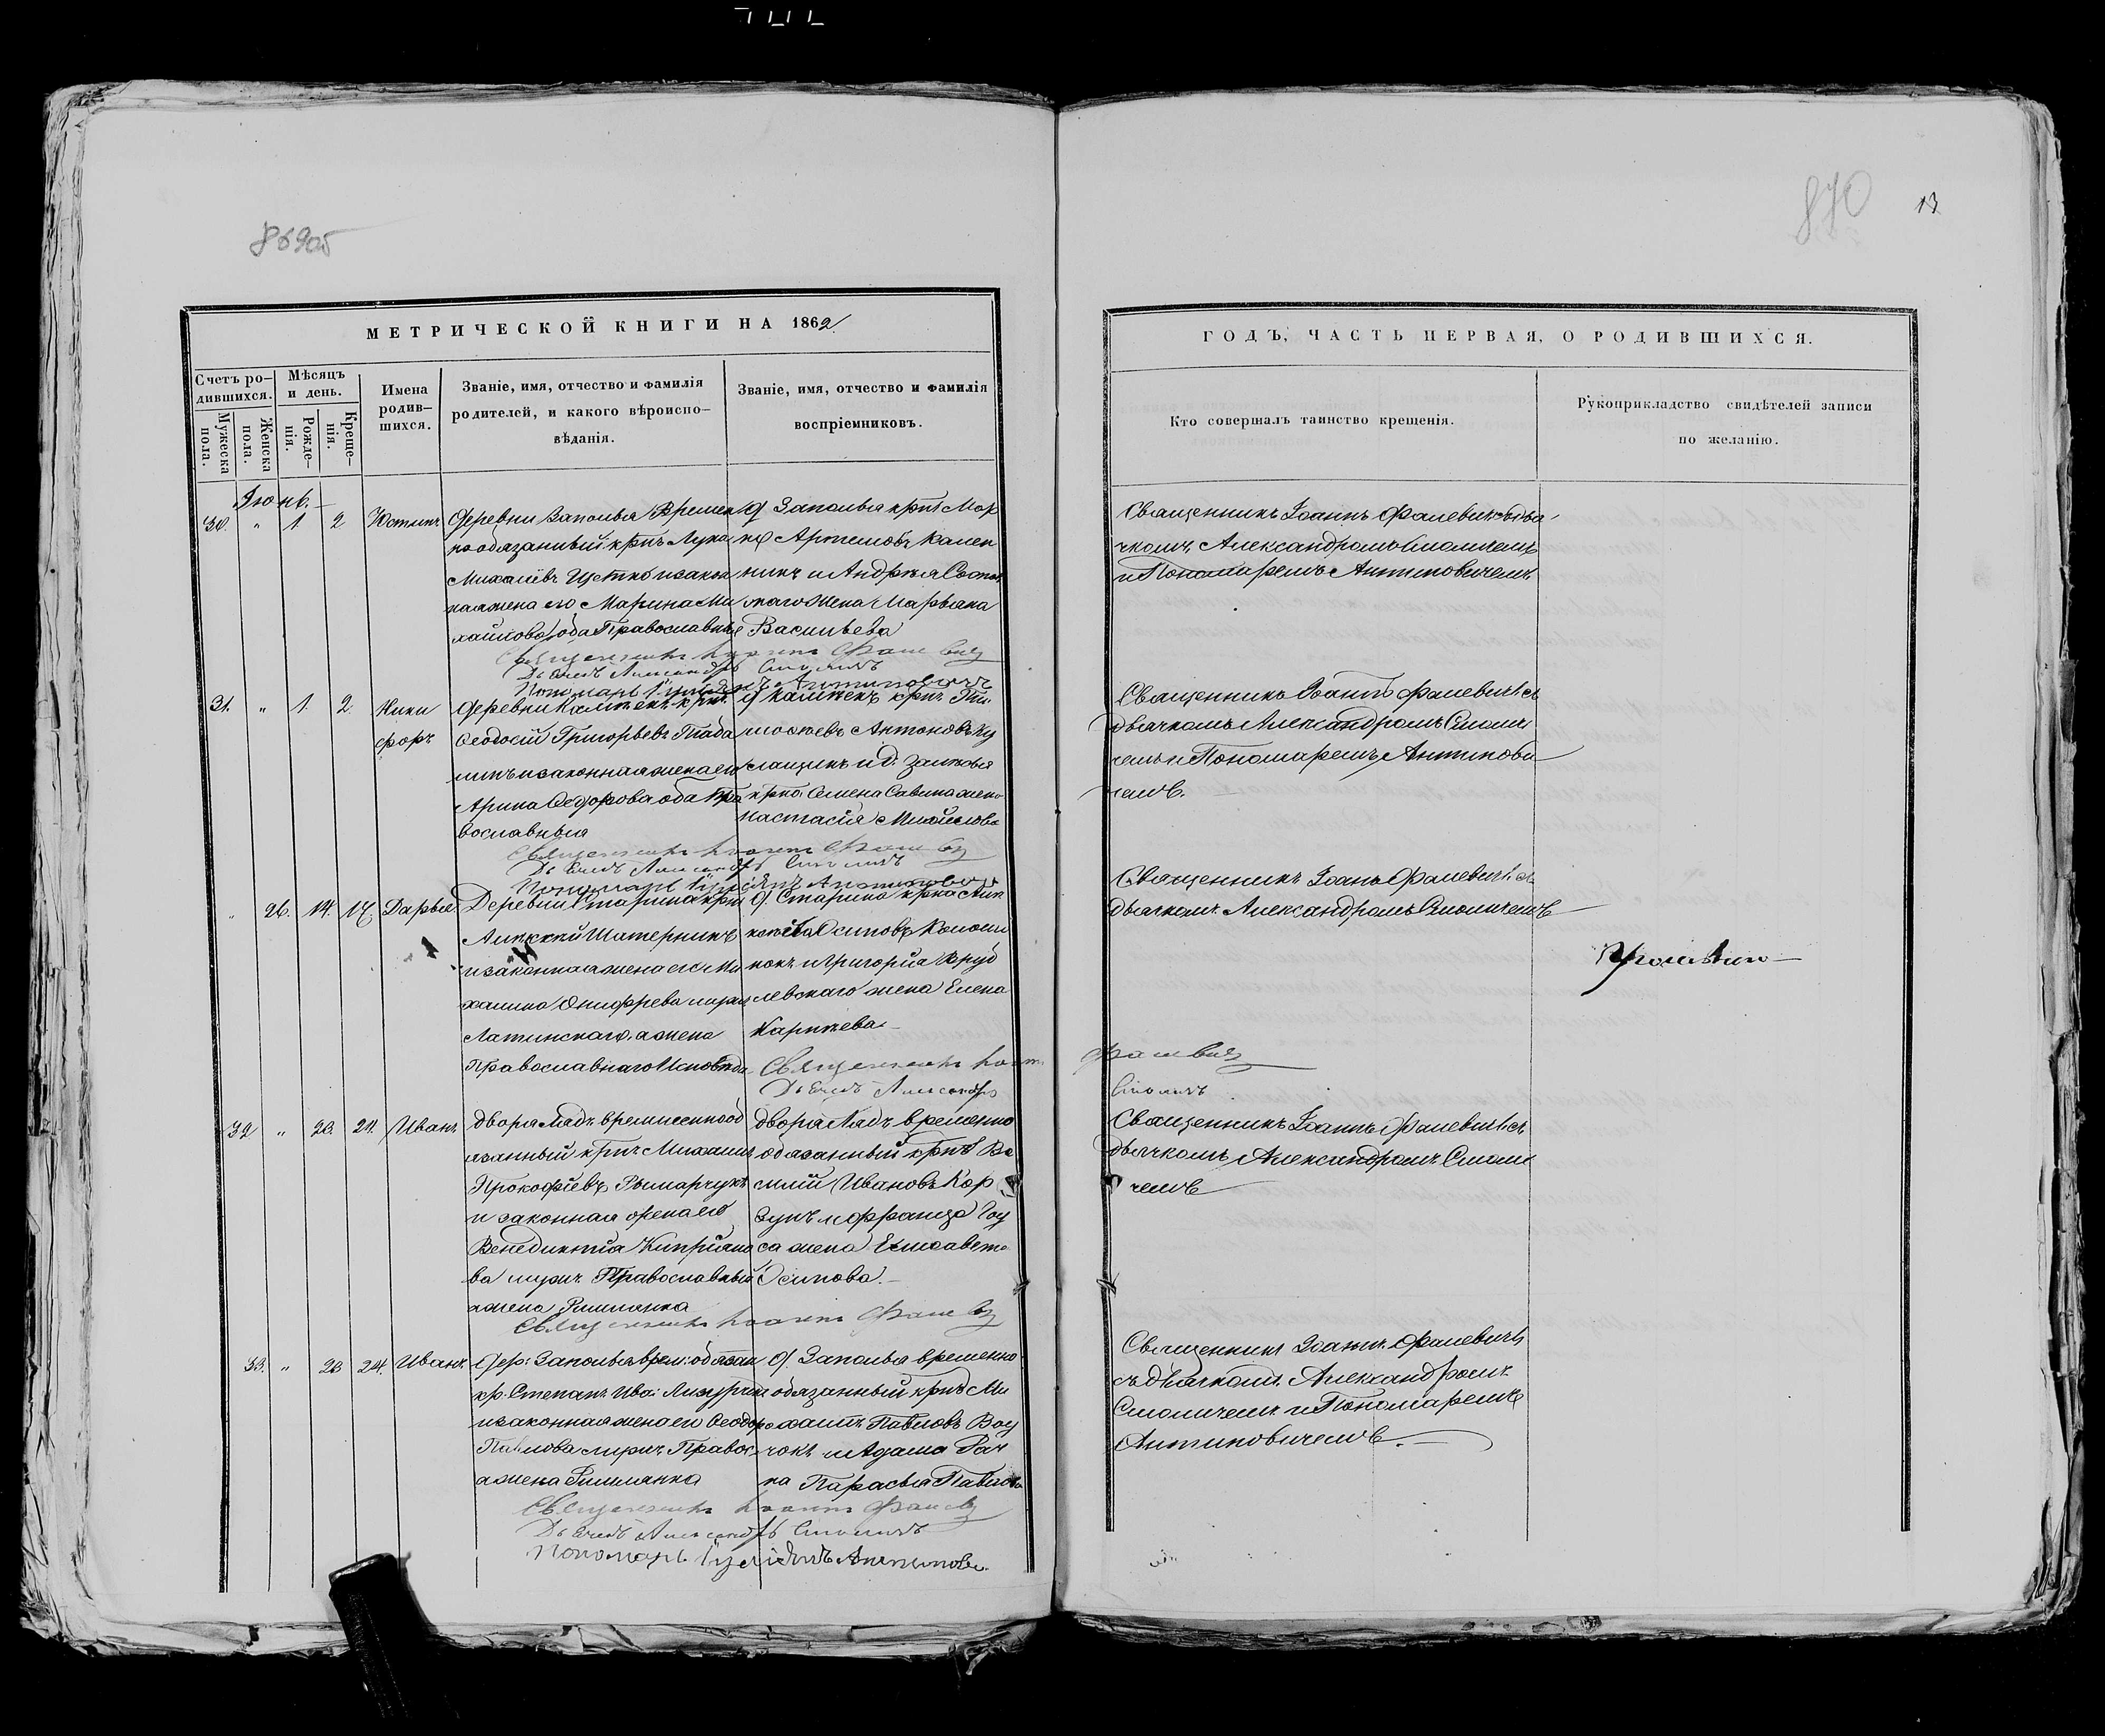 869об
МЕТРИЧЕСКОЙ КНИГИ НА 1862
Счетъ ро-
дившихся.
Мужеска
пола.
Женска
пола.
Мѣсяцъ
и день.
Рожде-
нія.
Креще-
нія.
Имена
родив-
шихся.
Званіе, имя, отчество и фамилія
родителей, и какого вѣроиспо-
вѣданія.
Званіе, имя, отчество и фамилія
воспріемниковъ.
Іюнь.
30. " 1 2 Юстинъ
Деревни Заполья Времен
но обязанный крпъ Лука
Михайлѣвъ и закон
ная жена его Марина Ми
хайлова оба Православные
Д. Заполья крпъ Мар
ко Артемовъ Кален
никъ и Андрея
жена Марьяна
Васильева
Священникъ Іоаннъ Фалевичъ
Дьячекъ Александръ Смоличъ
Пономарь Антиповичъ
31. " 1. 2. Ники
форъ
Деревни крпъ
Ѳеодосій Григорьевъ
и законная жена его
Арина Ѳедорова оба Пра
вославныя
Д. крпъ Ти
моѳеевъ Антоновъ
и д. Заполья
крпа Семена Савина жена
Настасія Михайлова
Священникъ Іоаннъ Фалевичъ
Дьячекъ Александръ Смоличъ
Пономарь Антиповичъ
" 26. 14. 17. Дарья
Деревни Старина крпъ
Алексѣй Шатерникъ
и законная жена его Ми
халина Онуфрева мужъ
Латинскаго, а жена
Православнаго Исповѣда
Д. Старина крпъ
Осиповъ
и Григорія Вруб
левскаго жена Елена
Карпѣева
Священникъ Іоаннъ
Дьячекъ Александръ
32 " 20. 24. Иванъ
Двора Лядъ временнооб
язанный крпъ Михаилъ
Прокофіевъ Рымарчукъ
и законная жена его
Венедиктія Кипріяно
ва мужъ Православный
а жена Римлянка
двора Лядъ временно
обязанный крпъ Ва
силій Ивановъ Кор
зунъ и Франца
жена Елисавета
Осипова.
Священникъ Іоаннъ Фалевичъ
33. " 23 24. Иванъ
Дер: Заполья врем: обязан
кр. Степанъ Ива:
и законная жена его Ѳеодора
Павлова мужъ Правос:
а жена Римлянка
Д. Заполья временно
обязанный крпъ Ми
хаилъ Павловъ
и Адама
Парасья Павлова
Священникъ Іоаннъ Фалевичъ
Дьячекъ Александръ Смоличъ
Пономарь Антипович
870
13
ГОДЪ, ЧАСТЬ ПЕРВАЯ, О РОДИВШИХСЯ.
Кто совершалъ таинство крещенія.
Рукоприкладство свидѣтелей записи
по желанію.
Священникъ Іоаннъ Фалевичъ съ дья
чкомъ Александромъ Смоличемъ
и Пономаремъ Антиповичемъ.
Священникъ Іоаннъ Фалевичъ съ
дьячкомъ Александромъ Смоли
чемъ и Пономаремъ Антипови
чемъ.
Священникъ Іоаннъ Фалевичъ съ
дьячкомъ Александромъ Смоличемъ
Фалевичъ
Смоличъ
Священникъ Іоаннъ Фалевичъ съ
дьячкомъ Александромъ Смоли
чемъ
Священникъ Іоаннъ Фалевичъ
съ дьячкомъ Александромъ
Смоличемъ и Пономаремъ
Антиповичемъ.